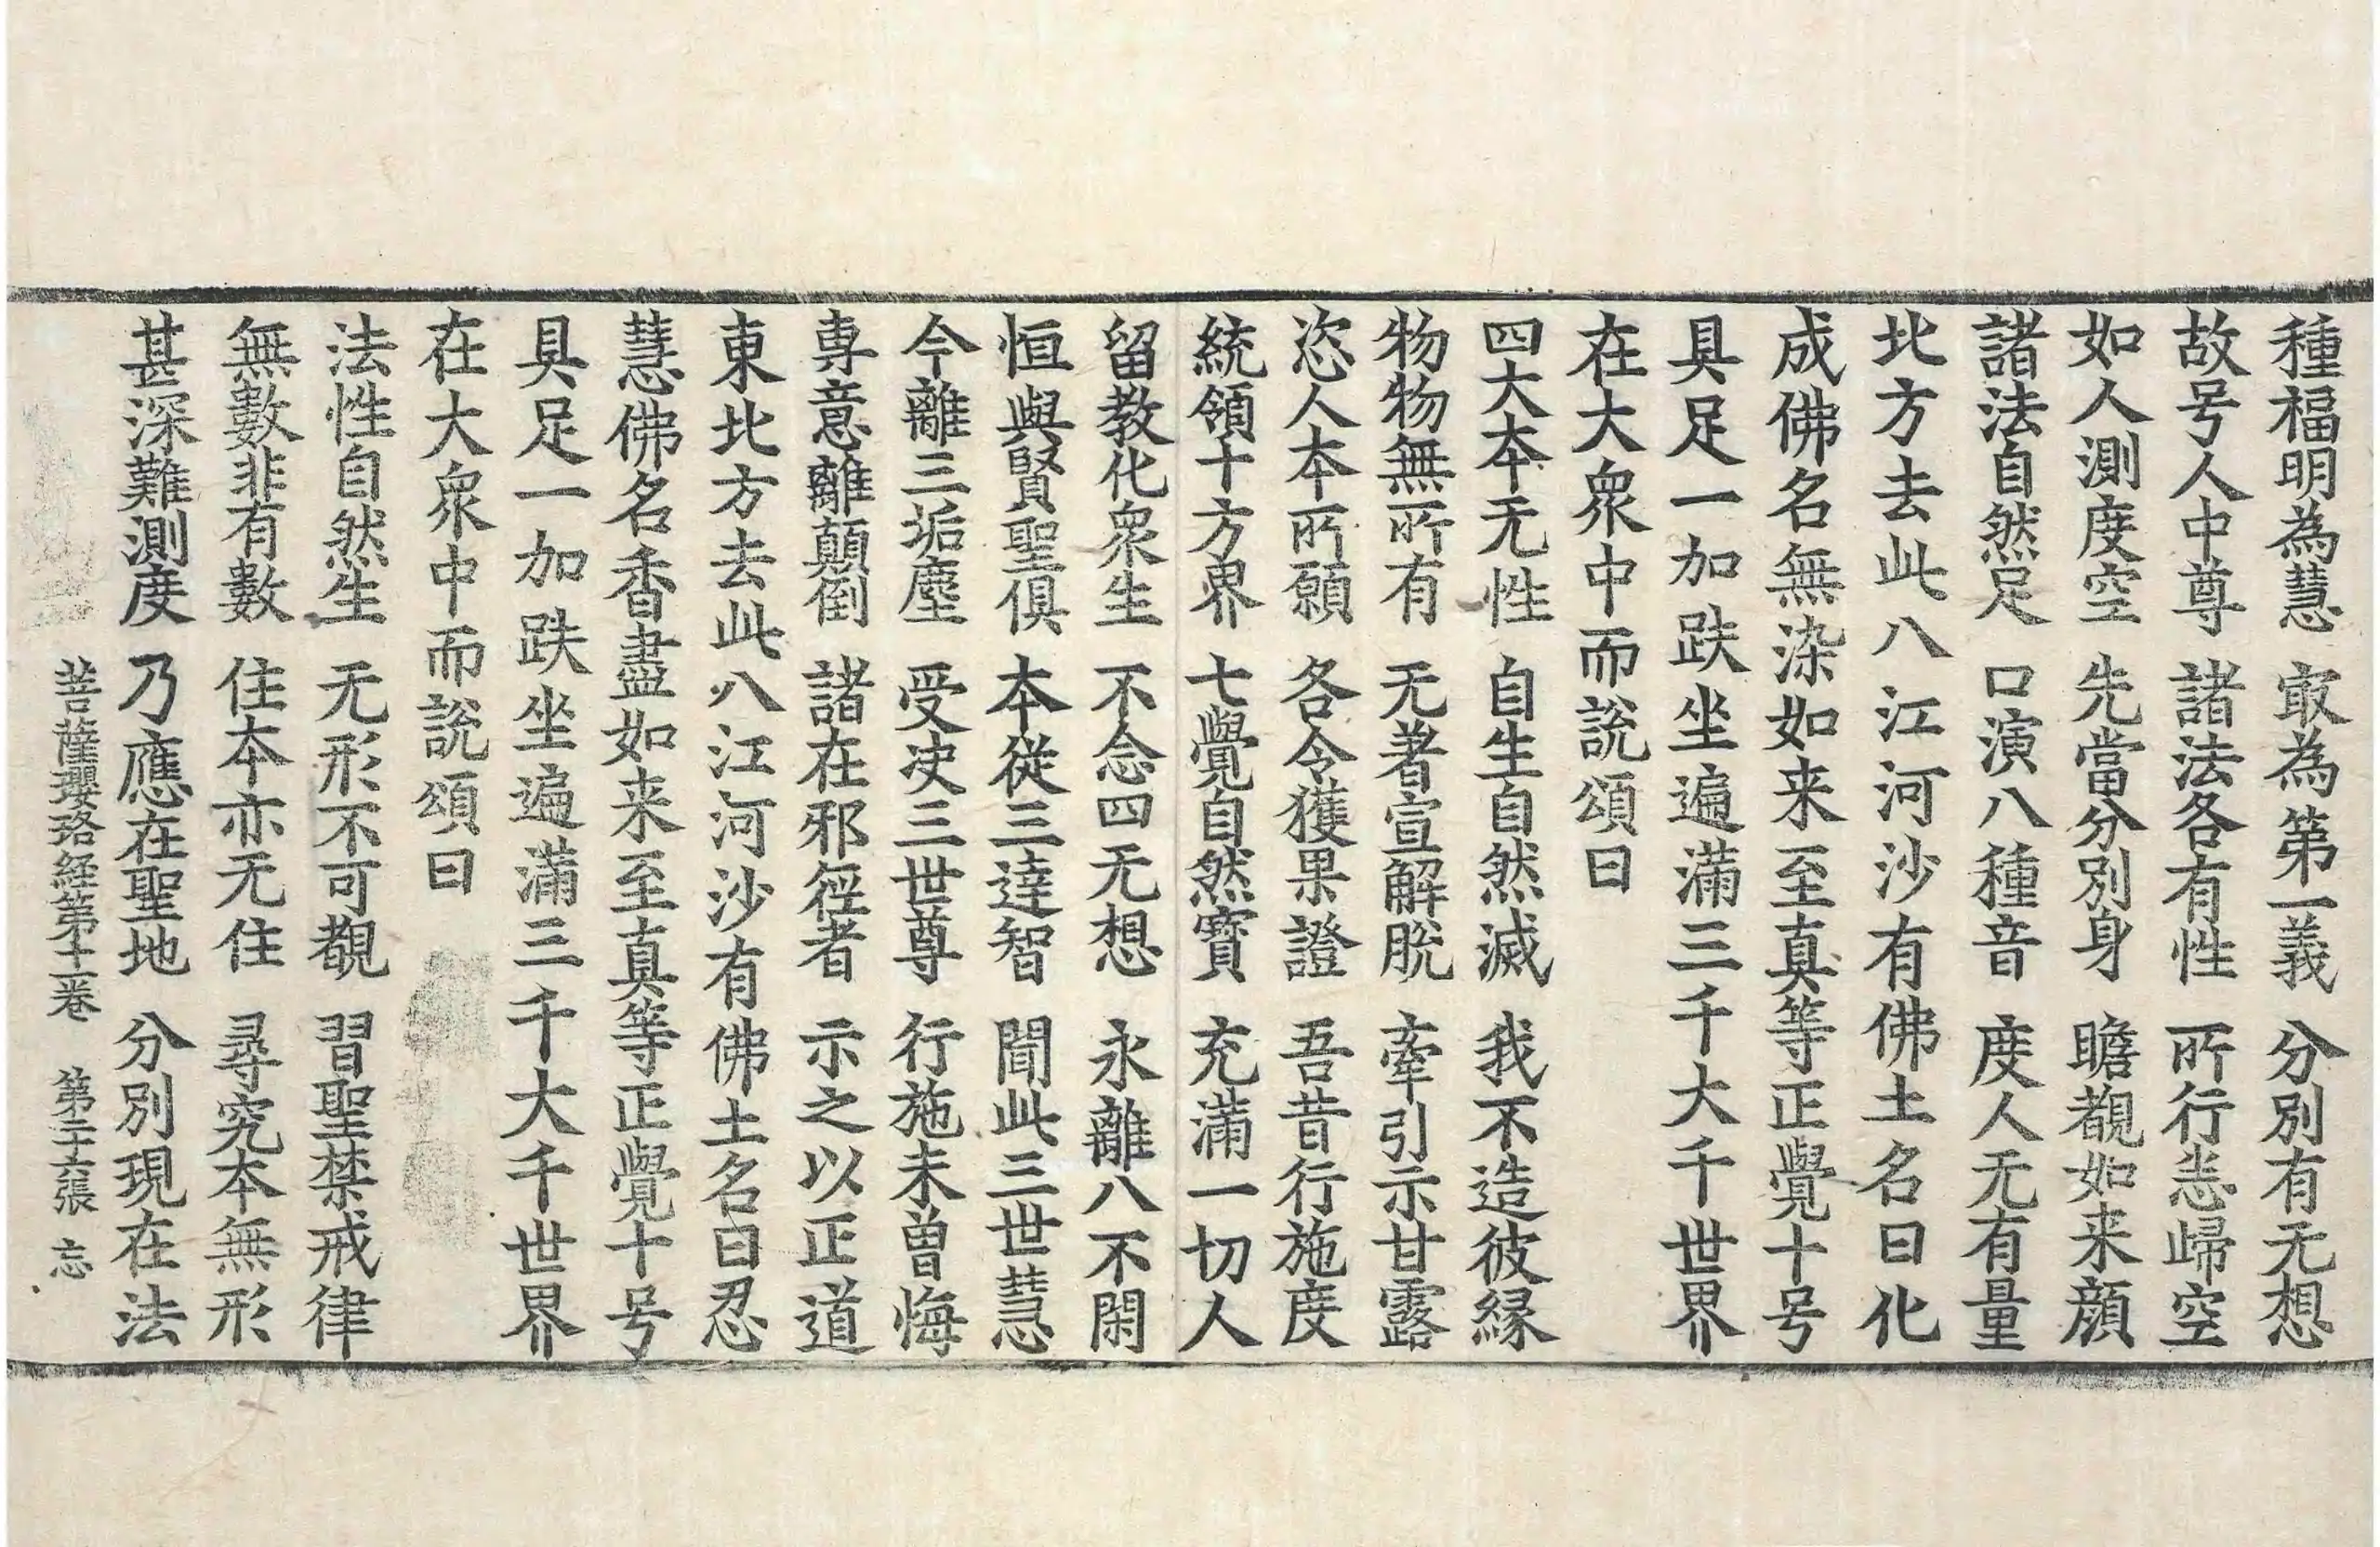 種福明為慧　㝡為第一義　分別有无想
故号人中尊　諸法各有性　所行恙歸空
如人測度空　先當分別身　瞻覩如来顔
諸法自然足　口演八種音　度人无有量
北方去此八江河沙有佛土名曰化
成佛名無染如来至真等正覺十号
具足一加趺坐遍滿三千大千世界
在大衆中而說頌曰
四大本无性　自生自然滅　我不造彼縁
物物無所有　无著宣解脫　牽引示甘露
恣人本所願　各令獲果證　吾昔行施度
統領十方界　七覺自然寶　充滿一切人
留教化衆生　不念四无想　永離八不閑
恒與賢聖俱　本從三達智　聞此三世慧
今離三垢塵　受决三世尊　行施未曾悔
專意離顛倒　諸在邪徑者　示之以正道
東北方去此八江河沙有佛土名曰忍
慧佛名香盡如来至真等正覺十号
具足一加趺坐遍滿三千大千世界
在大衆中而說頌曰
法性自然生　无形不可覩　習聖禁戒律
無數非有數　住本亦无住　尋究本無形
甚深難測度　乃應在聖地　分別現在法
菩薩瓔珞經第十一卷　第二十六張　忘